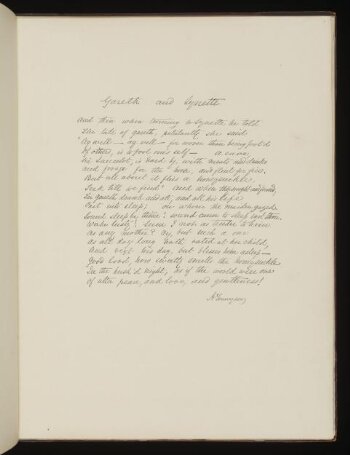 Gareth and Lynette
And then when turning to Lynette he told
The tale of Gareth, petulantly she said
"Ay well — ay well — for worse than being fool'd
Of others, is to fool one's self — A cave,
Sir Lancelot, is hard by, with meats and drinks
And forage for the horse, and flint for fire.
But all about it flies a honeysuckle.
Seek till we find." And when they sought and found,
Sir Gareth drank and ate, and all his life
Past into sleep; on whom the maiden gazed.
"Sound sleep be thine! sound cause to sleep hast thou.
Wake lusty! Seem I not as tender to him
As any mother? Ay, but such a one
As all day long hath rated at her child,
And vext his day, but blesses him asleep —
Good Lord, how sweetly smells the honeysuckle
In the hush'd night, as if the world were one
Of utter peace, and love, and gentleness!
A Tennyson